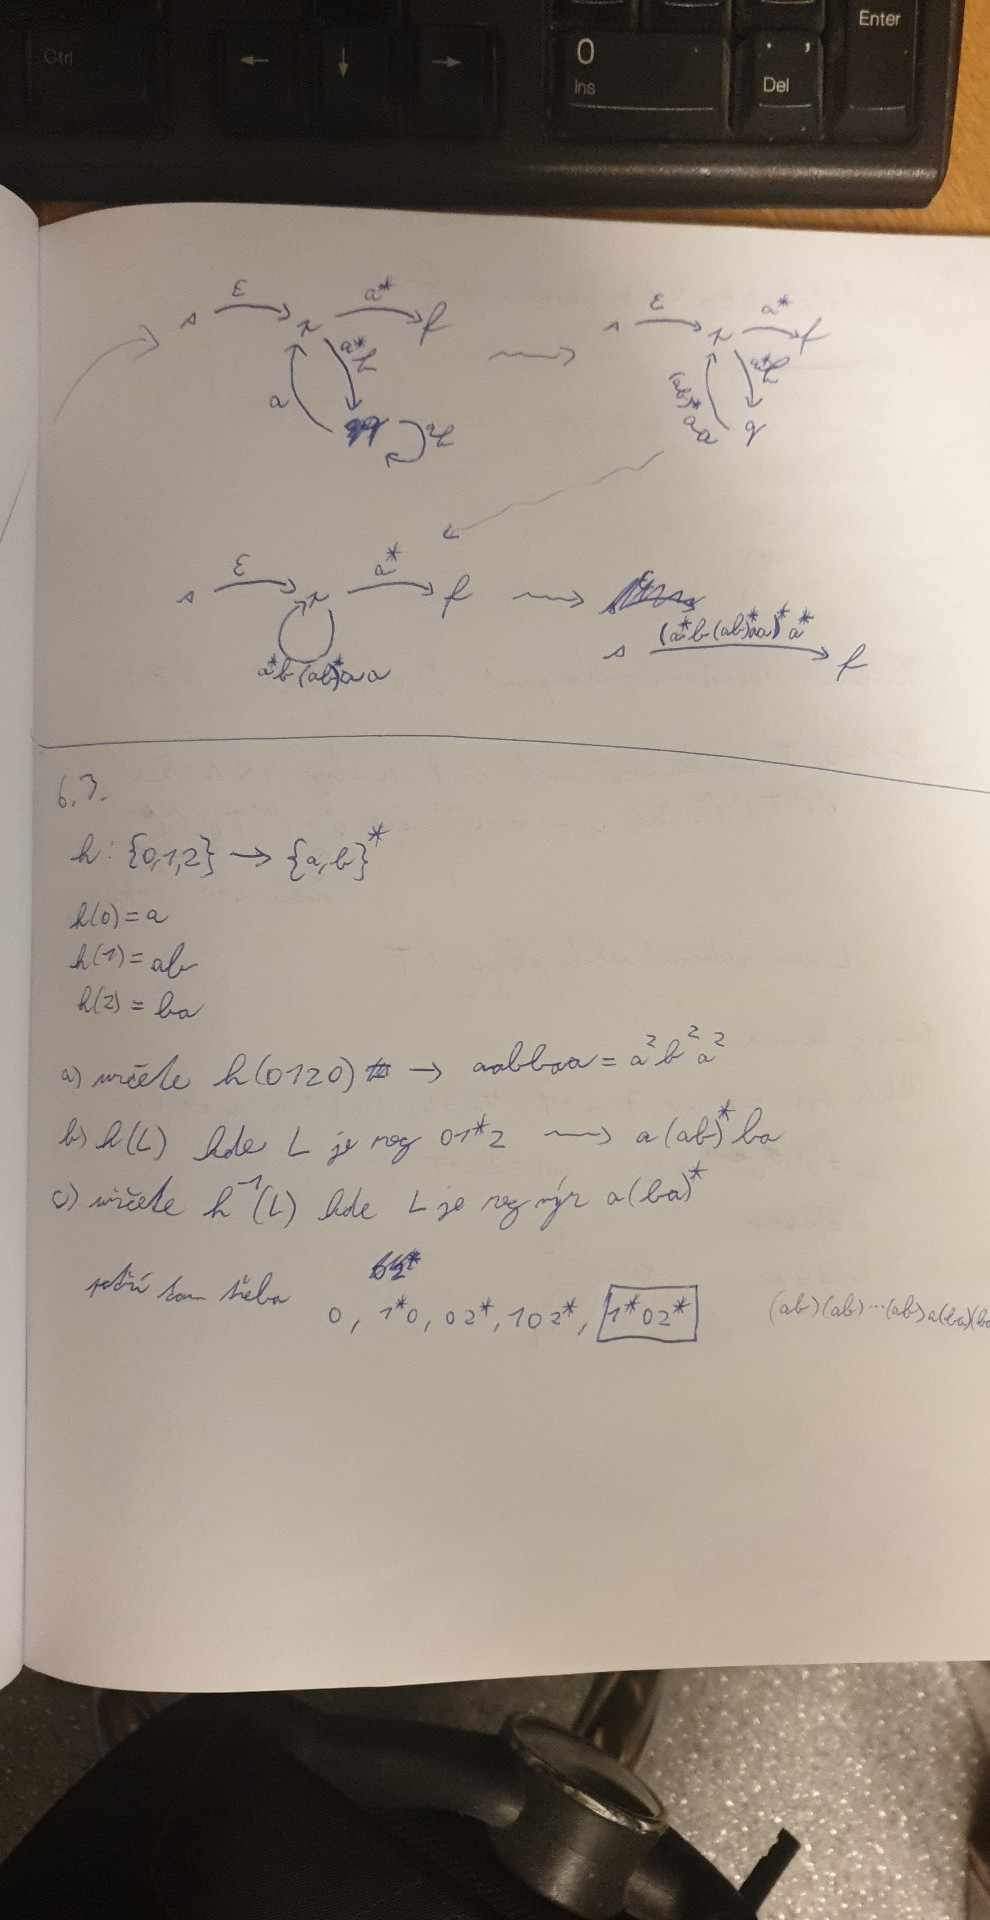 Ctrl
←
↓
→
0
Ins
. ,
Del
Enter
s ε r a* f
a*b
a
q
s ε r a* f
a*b
(ab)*aa
q
s ε r a* f
a*b(ab)*aa
s (a*b(ab)*aa)*a* f
6.3.
h: {0,1,2} → {a,b}*
h(0) = a
h(1) = ab
h(2) = ba
a) určete h(0120) → aabbaa = a²b²a²
b) h(L) kde L je reg 01*2 ⟿ a(ab)*ba
c) určete h⁻¹(L) kde L je reg výr a(ba)*
patří tam třeba 0, 1*0, 02*, 102*, 1*02*
(ab)(ab)...(ab)a(ba)(ba